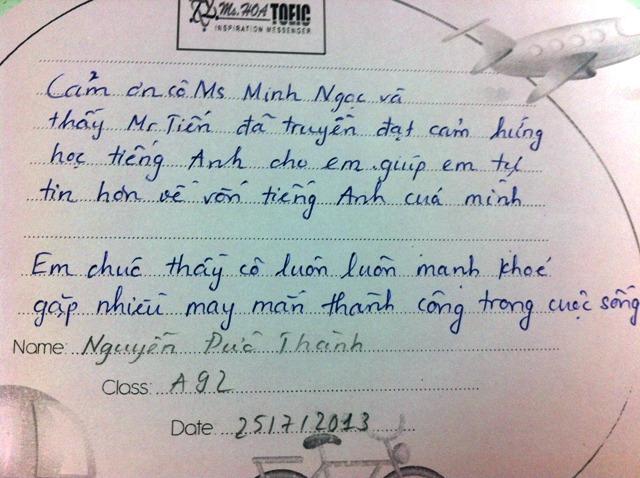 Ms. HOA TOEIC
INSPIRATION MESSENGER
Cảm ơn cô Ms Minh Ngọc và
thầy Mr Tiến đã truyền đạt cảm hứng
học tiếng Anh cho em giúp em tự
tin hơn về vốn tiếng Anh của mình
Em chúc thầy cô luôn luôn mạnh khoẻ
gặp nhiều may mắn thành công trong cuộc sống
Name: Nguyễn Đức Thành
Class: A92
Date 25/7/2013